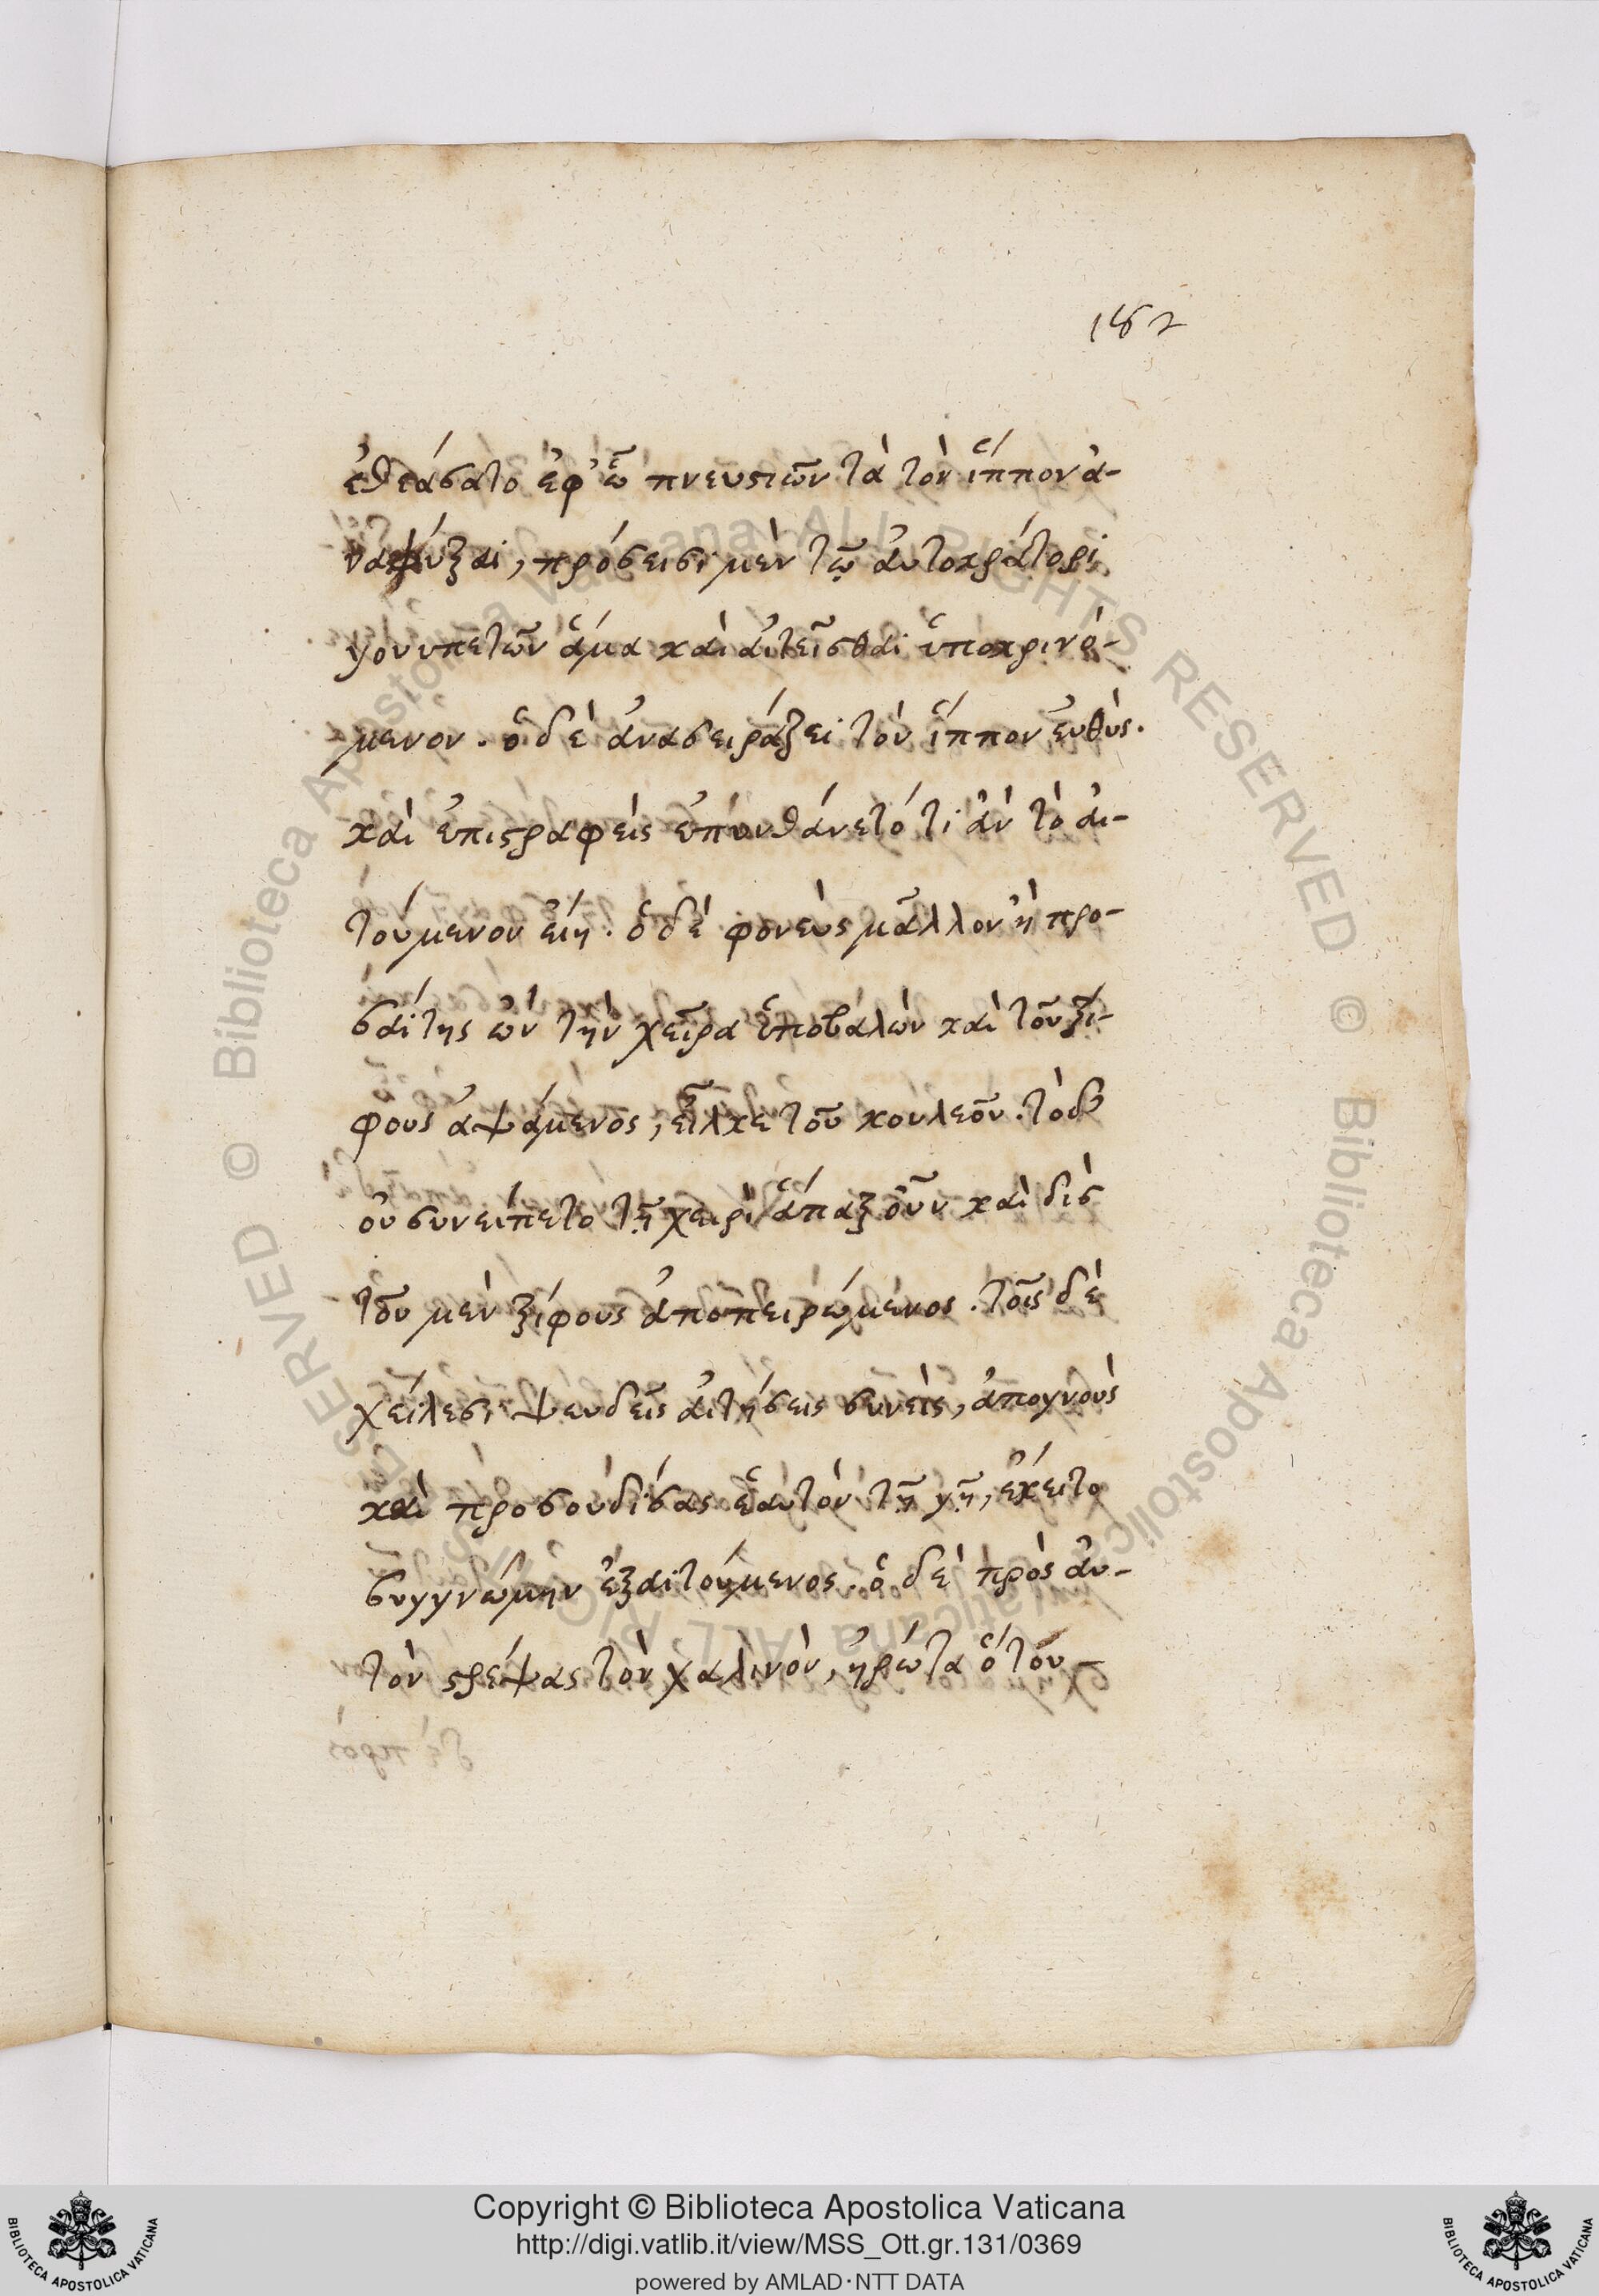 182
ἐθεάσατο ἐφ' ᾧ πνευστιῶντα τὸν ἵππον ἀ-
ναψύξαι, πρόσεισι μὲν τῷ ἀυτοκράτορι
γονυπετῶν ἅμα καὶ ἀιτεῖσθαι ὑποκρινό-
μενον. ὁ δὲ ἀνασειράζει τὸν ἵππον ἐυθὺς.
καὶ ἐπιστραφεὶς ἐπυνθάνετό τι ἂν τὸ ἀι-
τούμενον εἴη. ὁ δὲ φονεὺς μᾶλλον ἢ προ-
σαίτης ὢν τὴν χεῖρα ὑποβαλὼν καὶ τοῦ ξί-
φους ἁψάμενος, εἷλκε τοῦ κουλεοῦ. τὸ δὲ
οὐ συνείπετο τῇ χειρὶ ἅπαξ οὖν καὶ δὶς
τοῦ μὲν ξίφους ἀποπειρώμενος. τοῖς δὲ
χείλεσι ψευδεῖς ἀιτήσεις συνεὶς, ἀπογνοὺς
καὶ προσουδίσας ἑαυτὸν τῇ γῇ, ἔκειτο
συγγνώμην ἐξαιτούμενος. ὁ δὲ πρὸς ἀυ-
τὸν στρέψας τὸν χαλινὸν, ἠρώτα ὅτου-
Copyright © Biblioteca Apostolica Vaticana
http://digi.vatlib.it/view/MSS_Ott.gr.131/0369
powered by AMLAD·NTT DATA